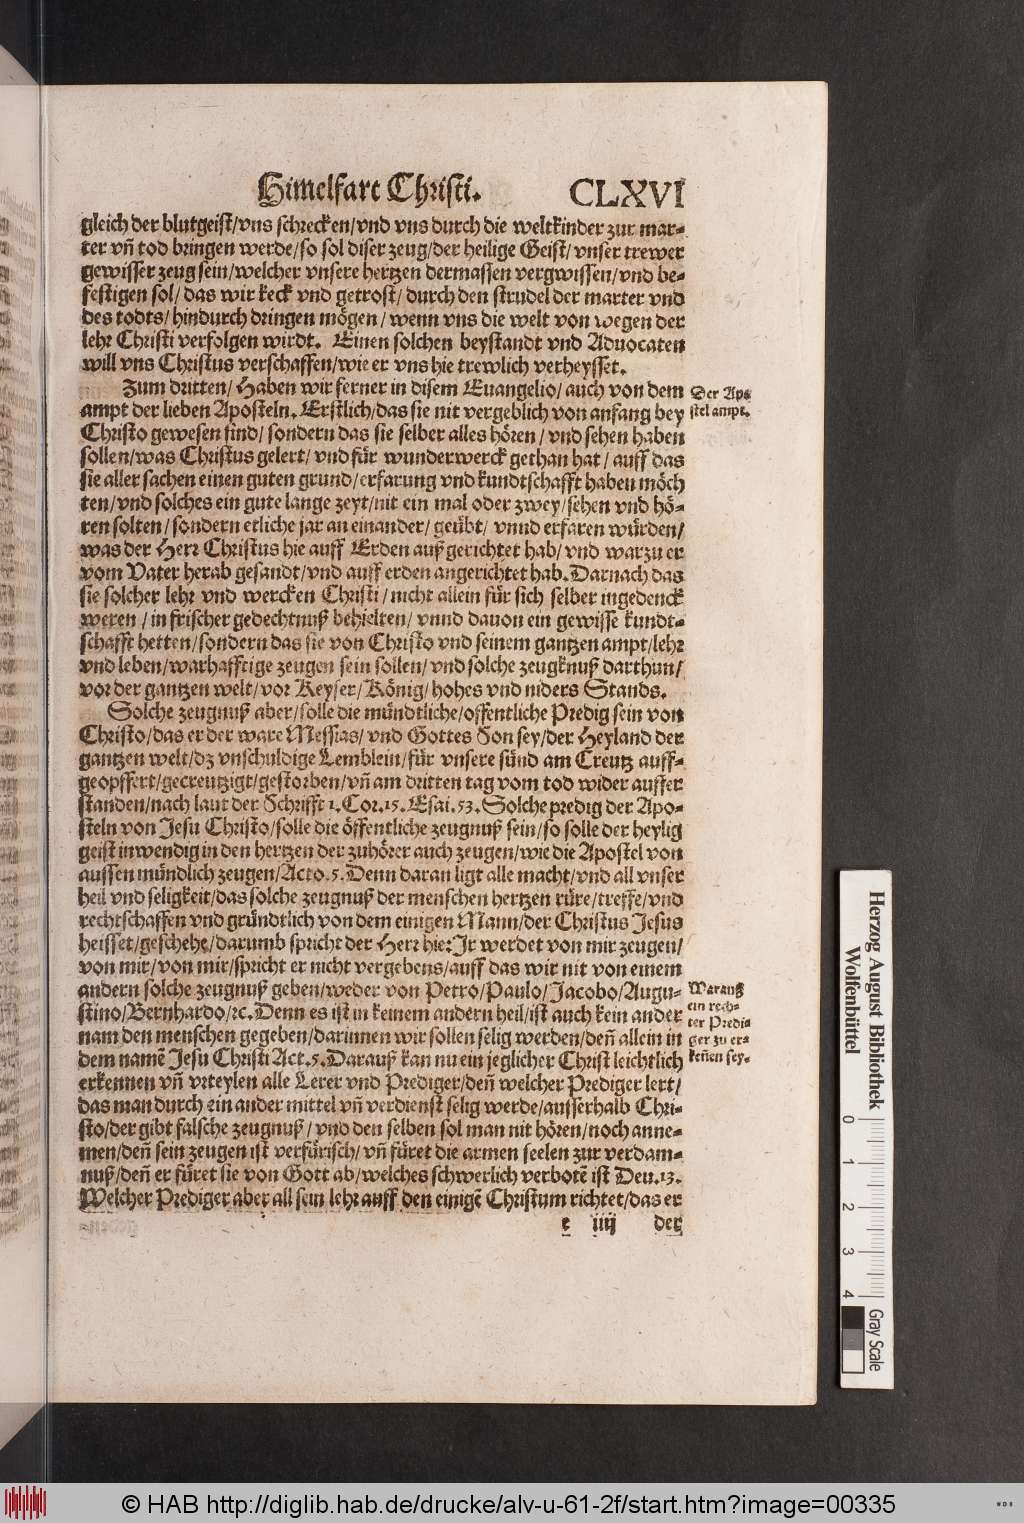 Himelfart Christi. CLXVI
gleich der blutgeist/vns schrecken/vnd vns durch die weltkinder zur mar-
ter vñ tod bringen werde/so sol diser zeug/der heilige Geist/vnser trewer
gewisser zeug sein/welcher vnsere hertzen dermassen vergwissen/vnd be-
festigen sol/das wir keck vnd getrost/durch den strudel der marter vnd
des todts/hindurch dringen mögen/wenn vns die welt von wegen der
lehr Christi verfolgen wirdt. Einen solchen beystandt vnd Aduocaten
will vns Christus verschaffen/wie er vns hie trewlich verheysset.
Zum dritten/Haben wir ferner in disem Euangelio/auch von dem
ampt der lieben Aposteln. Erstlich/das sie nit vergeblich von anfang bey
Christo gewesen sind/sondern das sie selber alles hören/vnd sehen haben
sollen/was Christus gelert/vnd für wunderwerck gethan hat/auff das
sie aller sachen einen guten grund/erfarung vnd kundtschafft haben möch
ten/vnd solches ein gute lange zeyt/nit ein mal oder zwey/sehen vnd hö-
ren solten/sondern etliche jar an einander/geübt/vnnd erfaren würden/
was der Herr Christus hie auff Erden außgerichtet hab/vnd warzu er
vom Vater herab gesandt/vnd auff erden angerichtet hab. Darnach das
sie solcher lehr vnd wercken Christi/nicht allein für sich selber ingedenck
weren/in frischer gedechtnuß behielten/vnnd dauon ein gewisse kundt-
schafft hetten/sondern das sie von Christo vnd seinem gantzen ampt/lehr
vnd leben/warhafftige zeugen sein sollen/vnd solche zeugknuß darthun/
vor der gantzen welt/vor Keyser/König/hohes vnd niders Stands.
Solche zeugnuß aber/solle die mündtliche/offentliche Predig sein von
Christo/das er der ware Messias/vnd Gottes Son sey/der Heyland der
gantzen welt/dz vnschuldige Lemblein/für vnsere sünd am Creutz auff-
geopffert/gecreutzigt/gestorben/vñ am dritten tag vom tod wider auffer
standen/nach laut der Schrifft 1. Cor. 15. Esai. 53. Solche predig der Apo-
steln von Jesu Christo/solle die öffentliche zeugnuß sein/so solle der heylig
geist inwendig in den hertzen der zuhörer auch zeugen/wie die Apostel von
aussen mündlich zeugen/Acto. 5. Denn daran ligt alle macht/vnd all vnser
heil vnd seligkeit/das solche zeugnuß der menschen hertzen rüre/treffe/vnd
rechtschaffen vnd gründtlich von dem einigen Mann/der Christus Jesus
heisset/geschehe/darumb spricht der Herr hie: Jr werdet von mir zeugen/
von mir/von mir/spricht er nicht vergebens/auff das wir nit von einem
andern solche zeugnuß geben/weder von Petro/Paulo/Jacobo/Augu-
stino/Bernhardo/ꝛc. Denn es ist in keinem andern heil/ist auch kein ander
nam den menschen gegeben/darinnen wir sollen selig werden/deñ allein in
dem namē Jesu Christi Act. 5. Darauß kan nu ein jeglicher Christ leichtlich
erkennen vñ vrteylen alle Lerer vnd Prediger/deñ welcher Prediger lert/
das man durch ein ander mittel vñ verdienst selig werde/ausserhalb Chri-
sto/der gibt falsche zeugnuß/vnd den selben sol man nit hören/noch anne-
men/deñ sein zeugen ist verfürisch/vñ füret die armen seelen zur verdam-
nuß/deñ er füret sie von Gott ab/welches schwerlich verbotē ist Deu. 13.
Welcher Prediger aber all sein lehr auff den einigē Christum richtet/das er
e iiij der
Der Apo
stel ampt.
Warauß
ein rech-
ter Predi-
ger zu er-
keñen sey.
Herzog August Bibliothek
Wolfenbüttel
0 1 2 3 4
Gray Scale
© HAB http://diglib.hab.de/drucke/alv-u-61-2f/start.htm?image=00335